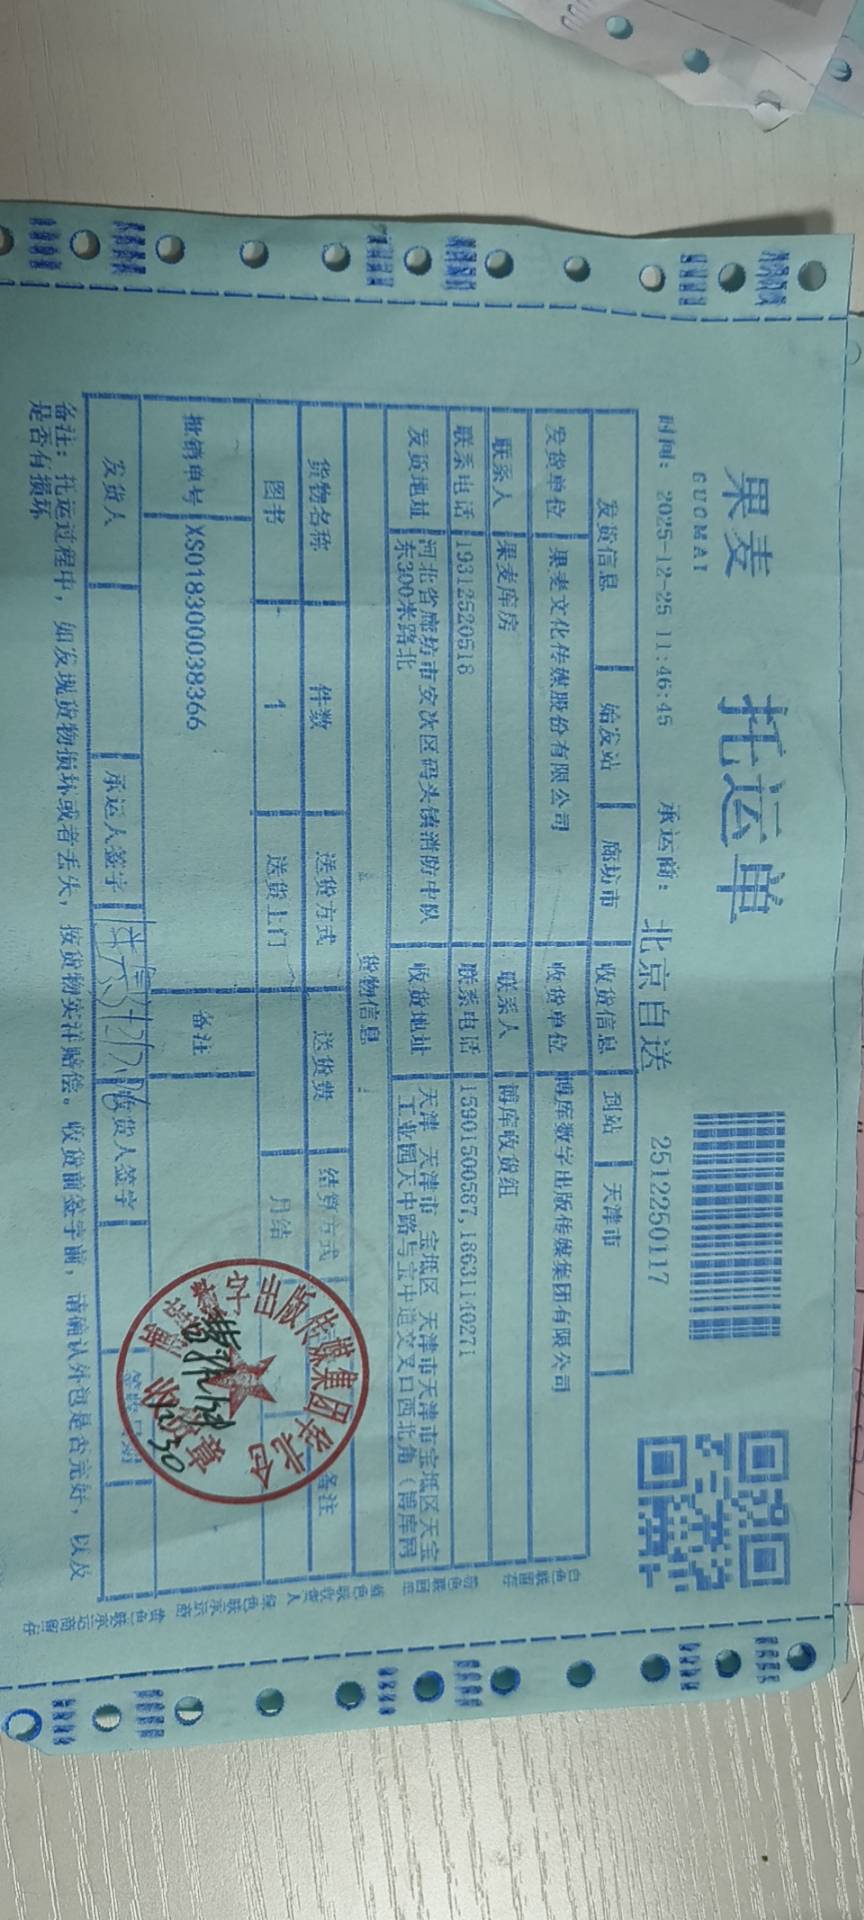 果麦
GUOMAI
托运单
时间: 2025-12-25 11:46:45 承运商: 北京自送 2512250117
发货信息 始发站 廊坊市 收货信息 到站 天津市
发货单位 果麦文化传媒股份有限公司 收货单位 博库数字出版传媒集团有限公司
联系人 果麦库房 联系人 博库收货组
联系电话 19312520516 联系电话 15901500587,18631140271
发货地址 河北省廊坊市安次区码头镇消防中队 收货地址 天津 天津市 宝坻区 天津市天津市宝坻区天宝
东300米路北 工业园天中路与宝中道交叉口西北角（博库网
货物信息
货物名称 件数 送货方式 送货费 结算方式 备注
图书 1 送货上门 月结
批销单号 XS018300038366 备注
发货人 承运人签字 收货人签字 签收日期
备注: 托运过程中, 如发现货物损坏或者丢失, 按货物实洋赔偿。收货前签字前, 请确认外包是否完好, 以及
是否有损坏
字出版传媒集团
收货章